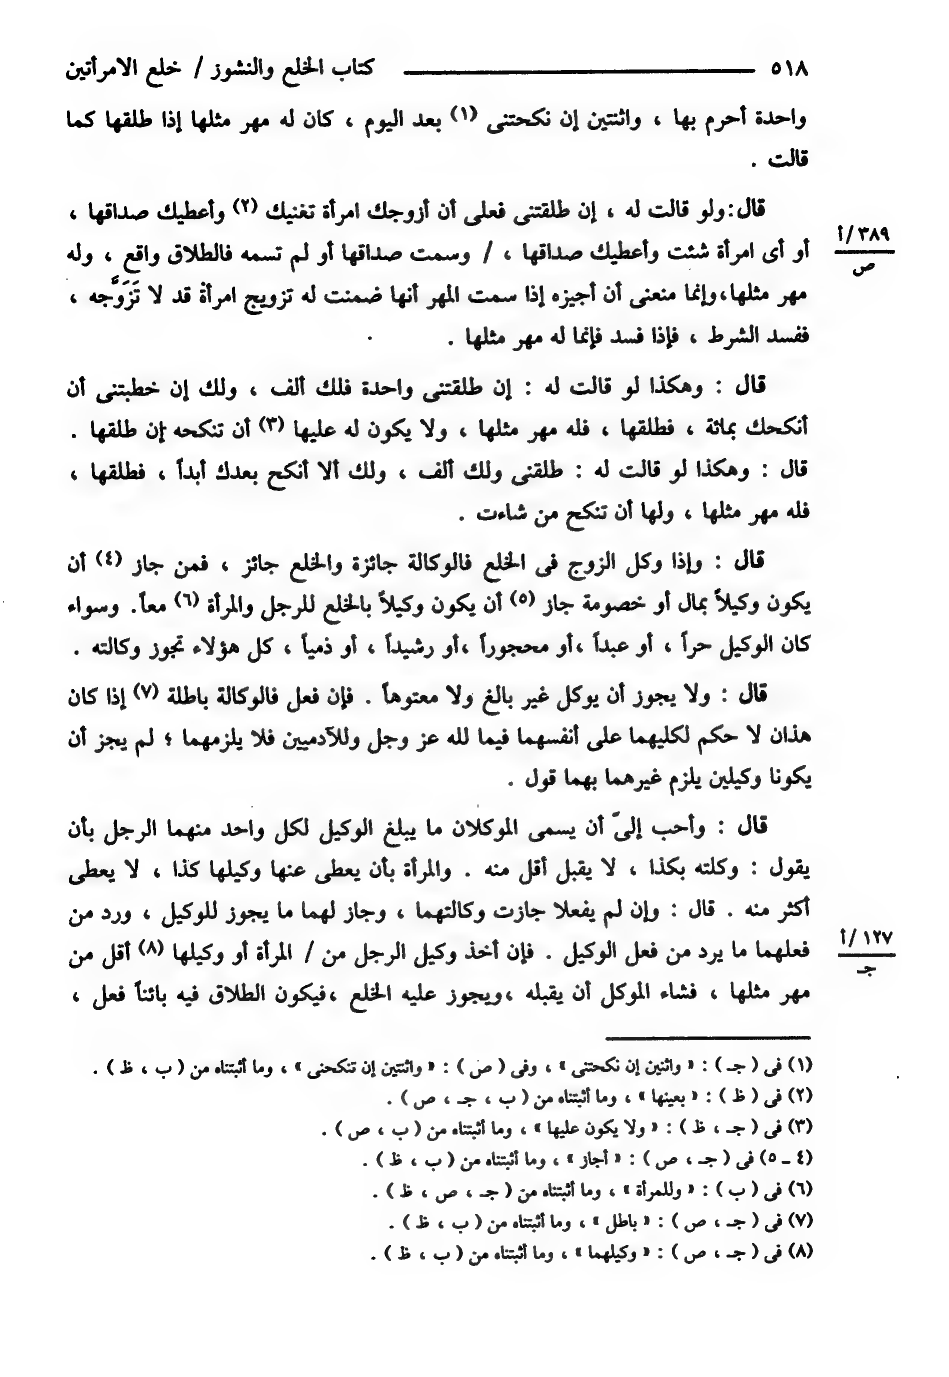 ٥١٨ ــــــــــــــــــــ كتاب الخلع والنشوز / خلع الامرأتين
واحدة أحرم بها ، واثنتين إن نكحتنى (١) بعد اليوم ، كان له مهر مثلها إذا طلقها كما
قالت .
قال :ولو قالت له ، إن طلقتنى فعلى أن أزوجك امرأة تغنيك (٢) وأعطيك صداقها ،
أو أى امرأة شئت وأعطيك صداقها ، / وسمت صداقها أو لم تسمه فالطلاق واقع ، وله
٣٨٩/ أ
ص
مهر مثلها،وإنما منعنى أن أجيزه إذا سمت المهر أنها ضمنت له تزويج امرأة قد لا تَزَوَّجه ،
ففسد الشرط ، فإذا فسد فإنما له مهر مثلها .
قال : وهكذا لو قالت له : إن طلقتنى واحدة فلك ألف ، ولك إن خطبتنى أن
أنكحك بمائة ، فطلقها ، فله مهر مثلها ، ولا يكون له عليها (٣) أن تنكحه إن طلقها .
قال : وهكذا لو قالت له : طلقنى ولك ألف ، ولك ألا أنكح بعدك أبداً ، فطلقها ،
فله مهر مثلها ، ولها أن تنكح من شاءت .
قال : وإذا وكل الزوج فى الخلع فالوكالة جائزة والخلع جائز ، فمن جاز (٤) أن
يكون وكيلاً بمال أو خصومة جاز (٥) أن يكون وكيلاً بالخلع للرجل والمرأة (٦) معاً. وسواء
كان الوكيل حراً ، أو عبداً ،أو محجوراً ،أو رشيداً ، أو ذمياً ، كل هؤلاء تجوز وكالته .
قال : ولا يجوز أن يوكل غير بالغ ولا معتوهاً . فإن فعل فالوكالة باطلة (٧) إذا كان
هذان لا حكم لكليهما على أنفسهما فيما لله عز وجل وللآدميين فلا يلزمهما ؛ لم يجز أن
يكونا وكيلين يلزم غيرهما بهما قول .
قال : وأحب إلىّ أن يسمى الموكلان ما يبلغ الوكيل لكل واحد منهما الرجل بأن
يقول : وكلته بكذا ، لا يقبل أقل منه . والمرأة بأن يعطى عنها وكيلها كذا ، لا يعطى
أكثر منه . قال : وإن لم يفعلا جازت وكالتهما ، وجاز لهما ما يجوز للوكيل ، ورد من
فعلهما ما يرد من فعل الوكيل . فإن أخذ وكيل الرجل من / المرأة أو وكيلها (٨) أقل من
١٢٧/ أ
جـ
مهر مثلها ، فشاء الموكل أن يقبله ،ويجوز عليه الخلع ،فيكون الطلاق فيه بائناً فعل ،
(١) فى ( جـ ) : « واثنين إن نكحتنى » ، وفى ( ص ) : « واثنتين إن تنكحنى » ، وما أثبتناه من ( ب ، ظ ) .
(٢) فى ( ظ ) : « بعينها » ، وما أثبتناه من ( ب ، جـ ، ص ) .
(٣) فى ( جـ ، ظ ) : « ولا يكون عليها » ، وما أثبتناه من ( ب ، ص ) .
(٤ ــ ٥) فى ( جـ ، ص ) : « أجاز » ، وما أثبتناه من ( ب ، ظ ) .
(٦) فى ( ب ) : « وللمرأة » ، وما أثبتناه من ( جـ ، ص ، ظ ) .
(٧) فى ( جـ ، ص ) : « باطل » ، وما أثبتناه من ( ب ، ظ ) .
(٨) فى ( جـ ، ص ) : « وكيلهما » ، وما أثبتناه من ( ب ، ظ ) .